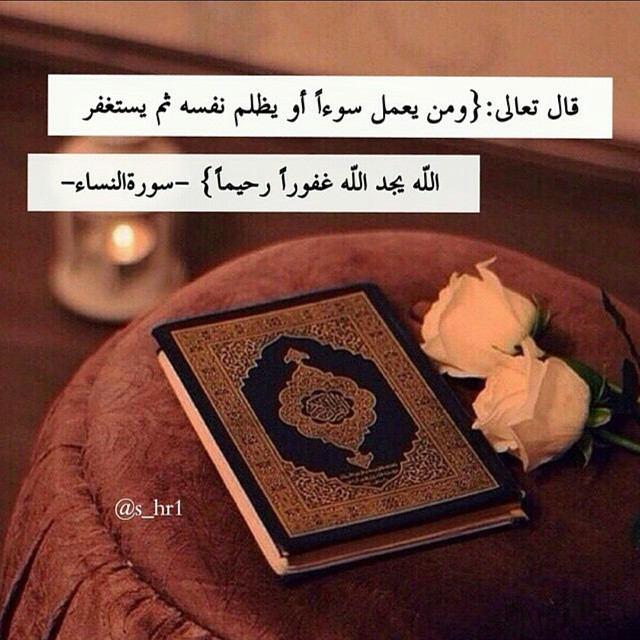 قال تعالى:{ومن يعمل سوءاً أو يظلم نفسه ثم يستغفر
اللّه يجد اللّه غفوراً رحيماً} -سورةالنساء-
@s_hr1